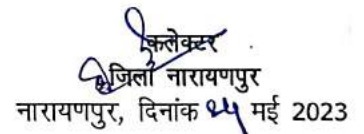 कलेक्टर
जिला नारायणपुर
नारायणपुर, दिनांक २५ मई 2023